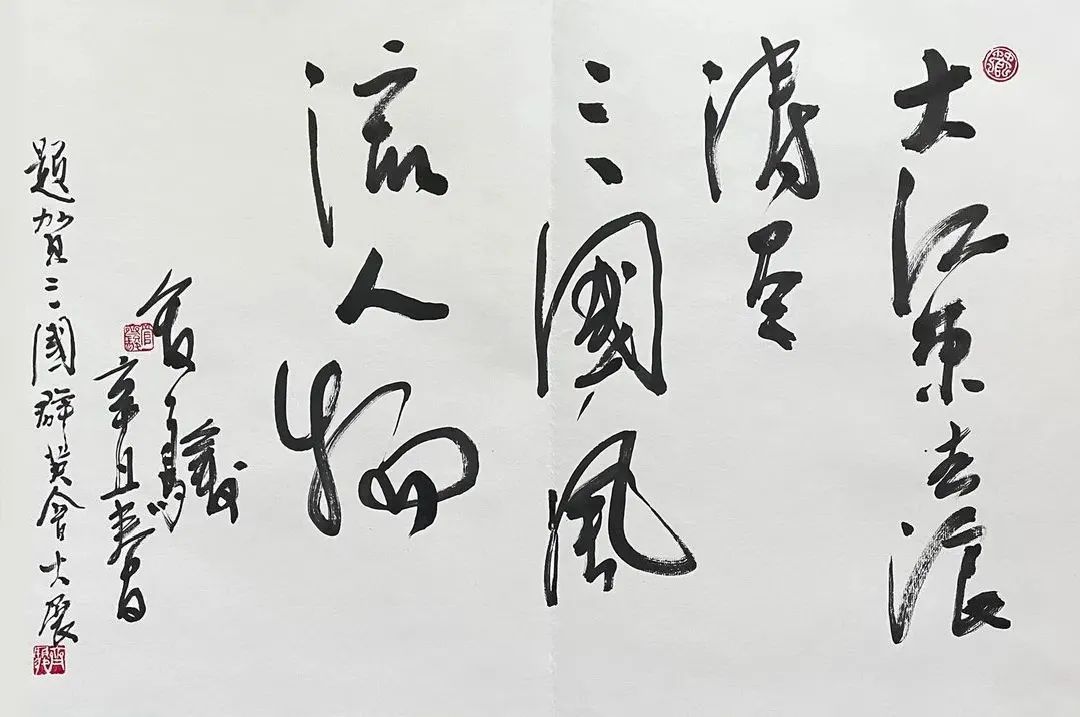 大江東去浪
淘盡
三國風
流人物
辛丑春
題賀三國群英會大展